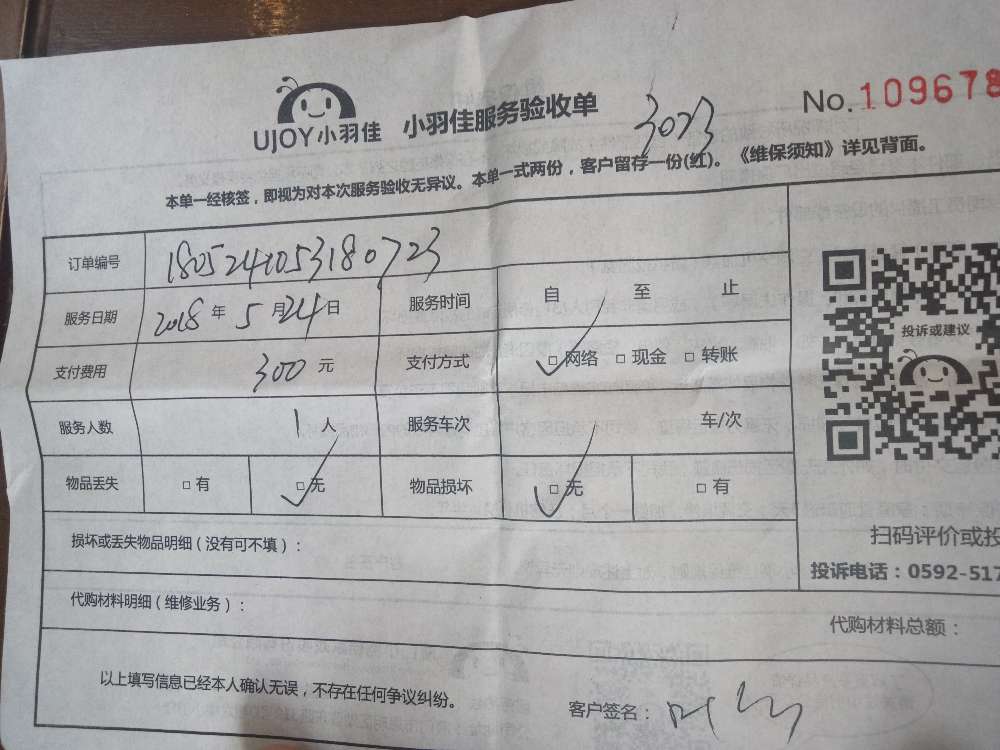 UJOY小羽佳 小羽佳服务验收单 No.109678
3023
本单一经核签，即视为对本次服务验收无异议。本单一式两份，客户留存一份(红)。《维保须知》详见背面。
订单编号 180524105318 0723
服务日期 2018年5月24日 服务时间 自 至 止
支付费用 300元 支付方式 □网络 □现金 □转账
服务人数 1人 服务车次 车/次
物品丢失 □有 □无 物品损坏 □无 □有
投诉或建议
扫码评价或投
投诉电话：0592-517
损坏或丢失物品明细（没有可不填）：
代购材料明细（维修业务）：
代购材料总额：
以上填写信息已经本人确认无误，不存在任何争议纠纷。
客户签名：